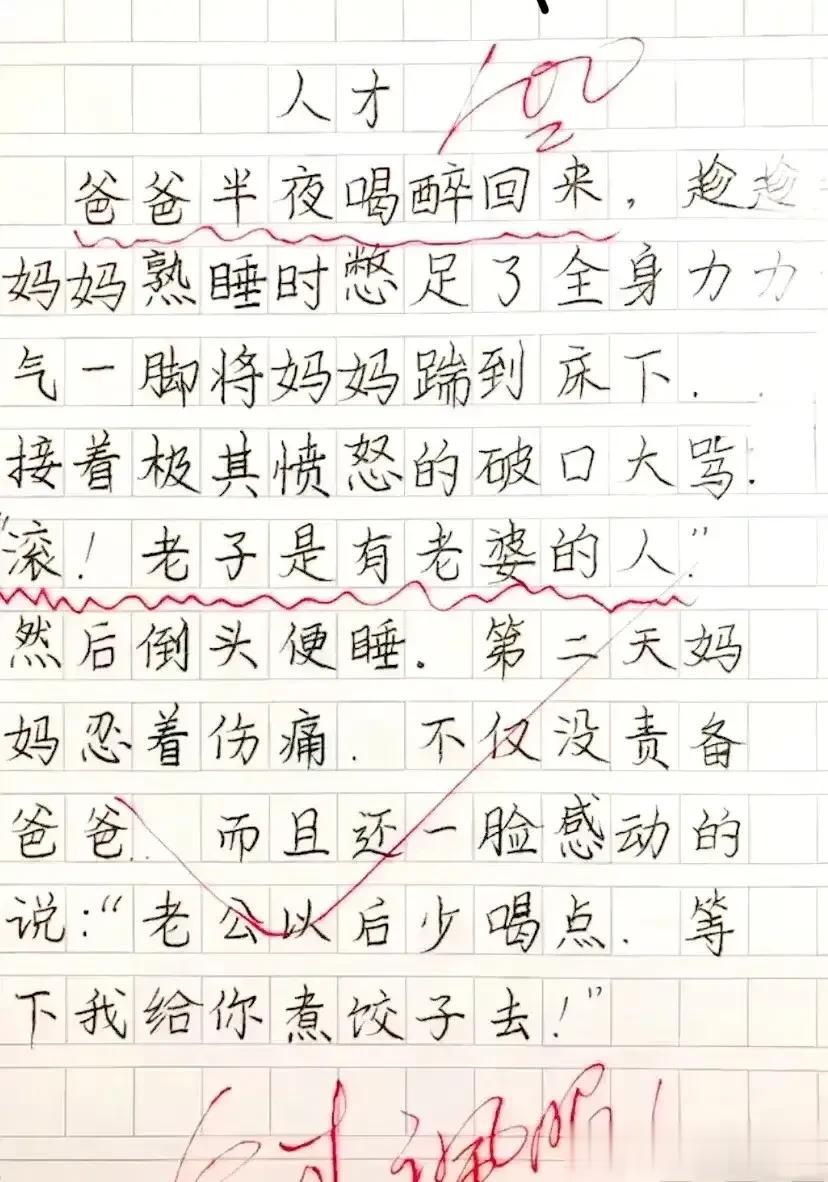 人才
100
爸爸半夜喝醉回来，趁趁
妈妈熟睡时憋足了全身力力
气一脚将妈妈踹到床下．
接着极其愤怒的破口大骂．
“滚！老子是有老婆的人”
然后倒头便睡．第二天妈
妈忍着伤痛．不仅没责备
爸爸．而且还一脸感动的
说：“老公以后少喝点．等
下我给你煮饺子去！”